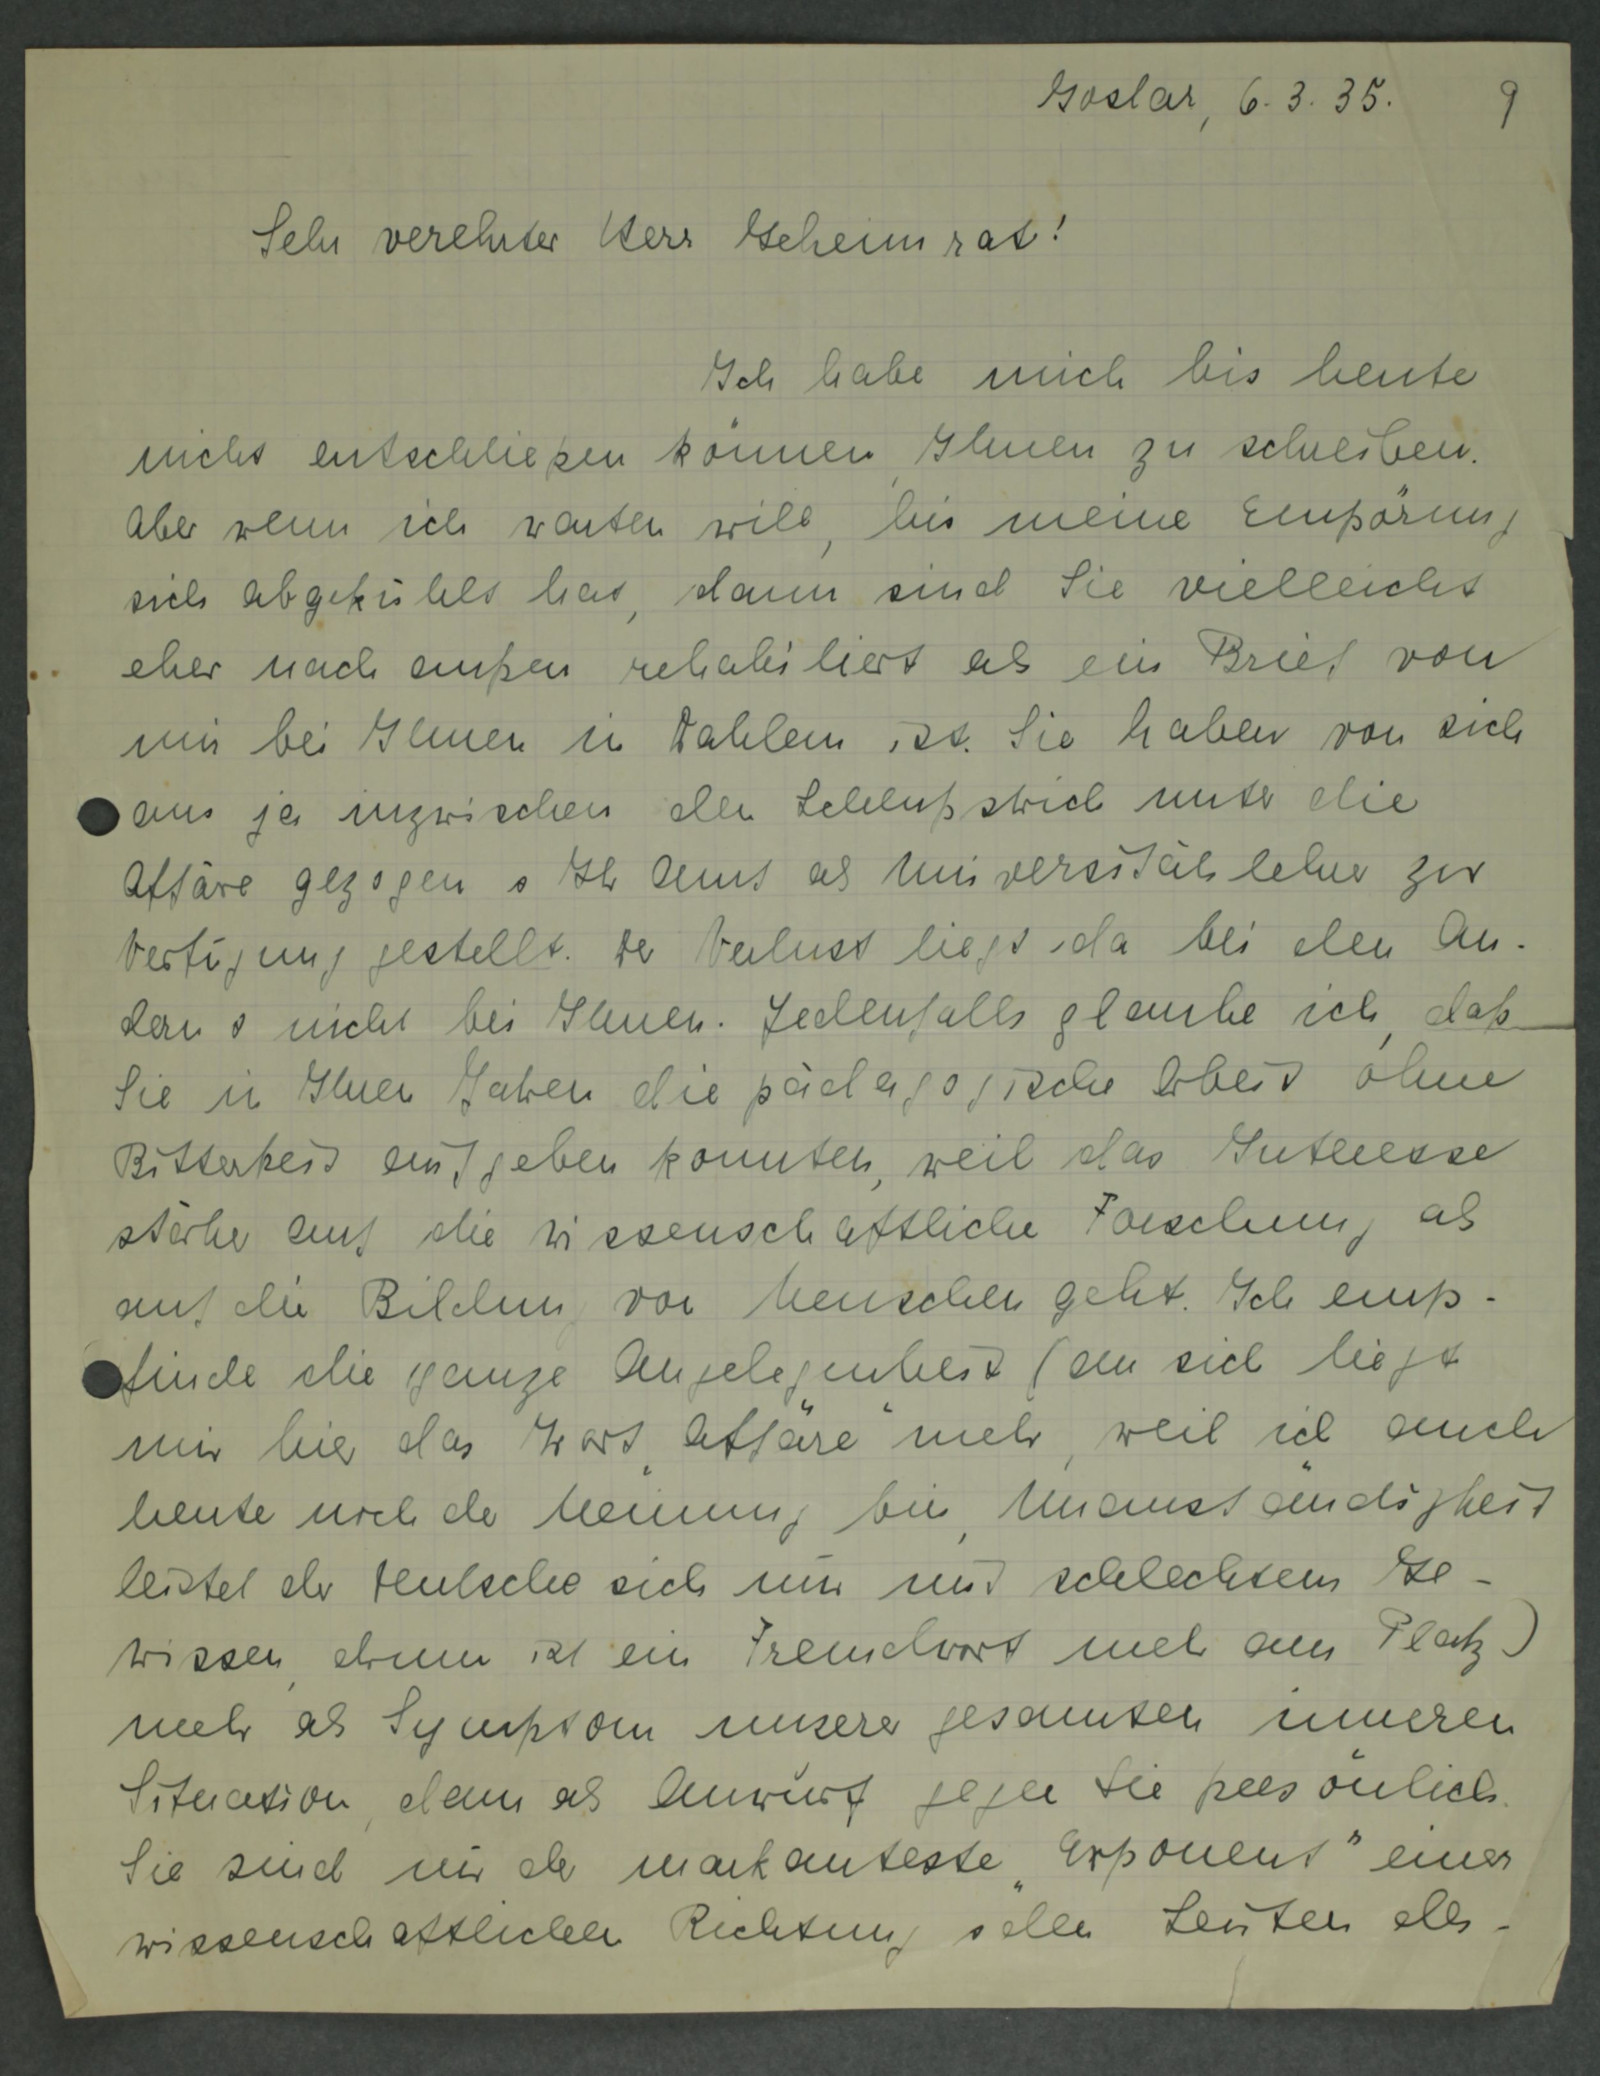 Goslar, 6.3.35. 9
Sehr verehrter Herr Geheimrat!
Ich habe mich bis heute
nicht entschließen können, Ihnen zu schreiben.
Aber wenn ich warten will, bis meine Empörung
sich abgekühlt hat, dann sind Sie vielleicht
eher nach außen rehabiliert als ein Brief von
mir bei Ihnen in Dahlem ist. Sie haben von sich
aus ja inzwischen den Schlußstrich unter die
Affäre gezogen u Ihr Amt als Universitätslehrer zur
Verfügung gestellt. Der Verlust liegt da bei den An-
dern u nicht bei Ihnen. Jedenfalls glaube ich, daß
Sie in Ihren Jahren die pädagogische Arbeit ohne
Bitterkeit aufgeben konnten, weil das Interesse
stärker auf die wissenschaftliche Forschung als
auf die Bildung von Menschen geht. Ich emp-
finde die ganze Angelegenheit (an sich liegt
mir hier das Wort „Affäre" mehr, weil ich auch
heute noch der Meinung bin, Unanständigkeit
leistet der Deutsche sich nur mit schlechtem Ge-
wissen, drum ist ein Fremdwort mehr am Platz)
mehr als Symptom unserer gesamten inneren
Situation, denn als Anwurf gegen Sie persönlich.
Sie sind mir der markanteste „Exponent" einer
wissenschaftlichen Richtung, u den Leuten der-